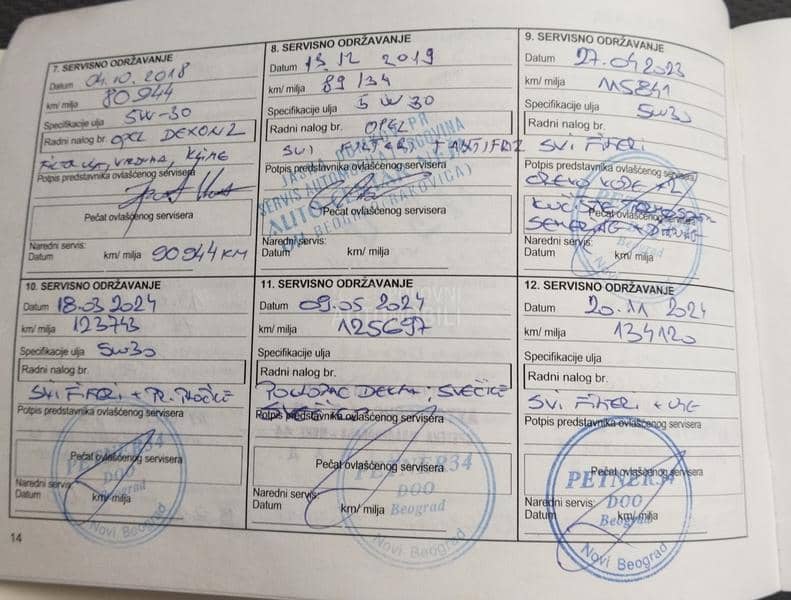 7. SERVISNO ODRŽAVANJE
Datum 04.10.2018
km/ milja 80944
Specifikacije ulja 5W-30
Radni nalog br. OPEL DEXON2
Potpis predstavnika ovlašćenog servisera
Pečat ovlašćenog servisera
Naredni servis:
Datum km/ milja 90944 KM
8. SERVISNO ODRŽAVANJE
Datum 13.12 2019
km/ milja 89134
Specifikacije ulja 5W30
Radni nalog br. OPEL
SVI FILTERI + ANTIFRIZ
Potpis predstavnika ovlašćenog servisera
Pečat ovlašćenog servisera
Naredni servis:
Datum km/ milja
9. SERVISNO ODRŽAVANJE
Datum 27.04 2023
km/ milja 115841
Specifikacije ulja 5W30
Radni nalog br.
SVI FILTERI
Potpis predstavnika ovlašćenog servisera
Pečat ovlašćenog servisera
Naredni servis:
Datum km/ milja
Beograd
10. SERVISNO ODRŽAVANJE
Datum 18.03 2024
km/ milja 123743
Specifikacije ulja 5W30
Radni nalog br.
SVI FILTERI + PR. PLOČICE
Potpis predstavnika ovlašćenog servisera
PETNER34
Pečat ovlašćenog servisera
DOO
Naredni servis:
Beograd
Datum km/ milja
Novi Beograd
11. SERVISNO ODRŽAVANJE
Datum 09.05 2024
km/ milja 125697
Specifikacije ulja
Radni nalog br.
POKLOPAC DEKLA, SVEĆICE
Potpis predstavnika ovlašćenog servisera
Pečat ovlašćenog servisera
PETNER34
DOO
Naredni servis:
Datum km/ milja
Beograd
Novi Beograd
12. SERVISNO ODRŽAVANJE
Datum 20.11 2024
km/ milja 134120
Specifikacije ulja
Radni nalog br.
SVI FILTERI + ULJE
Potpis predstavnika ovlašćenog servisera
Pečat ovlašćenog servisera
PETNER34
DOO
Naredni servis:
Datum km/ milja
Beograd
Novi Beograd
14